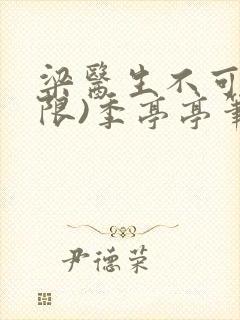 梁醫生不可
限)季亭亭筆
尹德荣